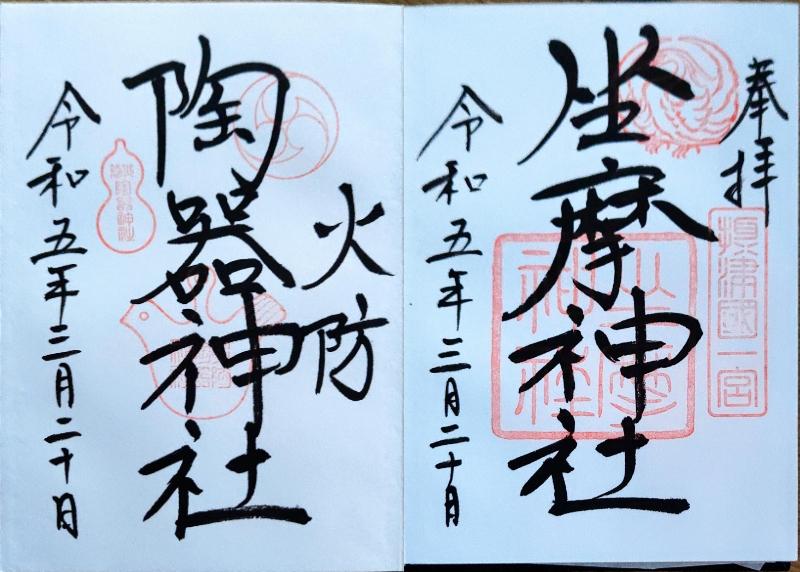 奉拝
攝津國一宮
坐摩神社
坐摩神社
令和五年三月二十日
火防
陶器神社
令和五年三月二十日